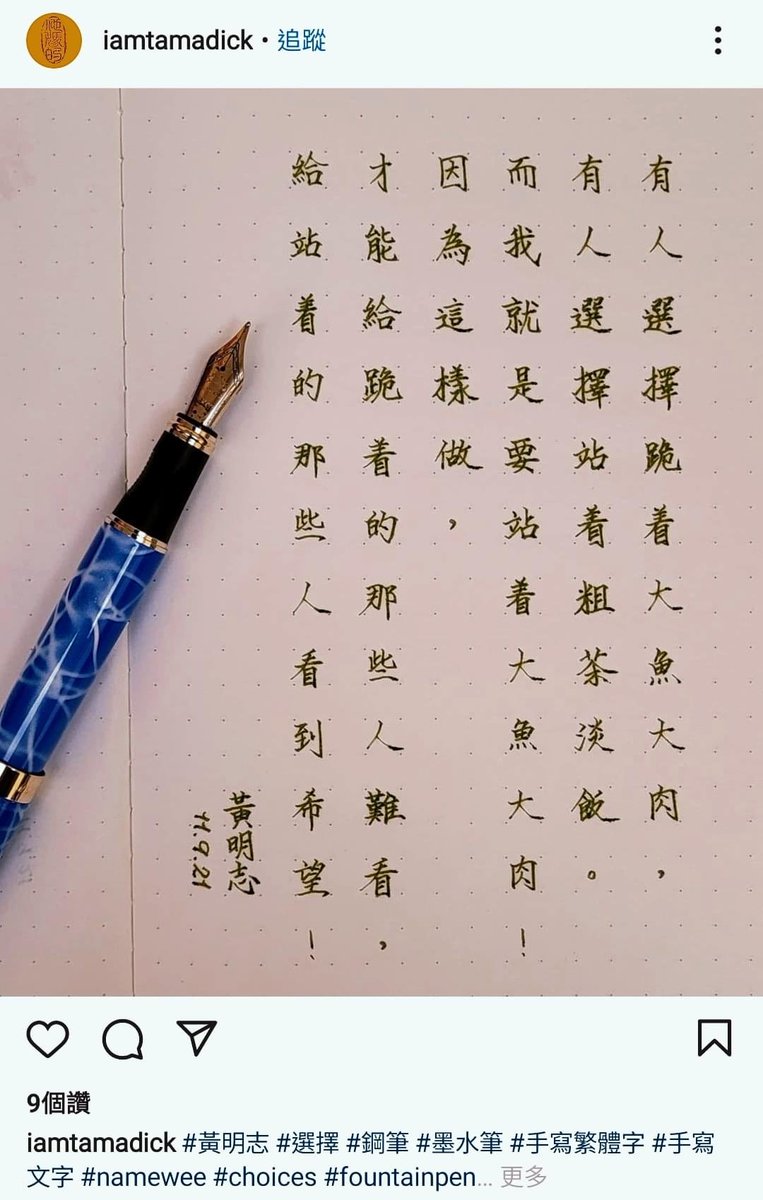 iamtamadick • 追蹤
有人選擇跪着大魚大肉，
有人選擇站着粗茶淡飯。
而我就是要站着大魚大肉！
因為這樣做，
才能給跪着的那些人難看，
給站着的那些人看到希望！
黃明志
11.9.21
9個讚
iamtamadick #黃明志 #選擇 #鋼筆 #墨水筆 #手寫繁體字 #手寫
文字 #namewee #choices #fountainpen... 更多